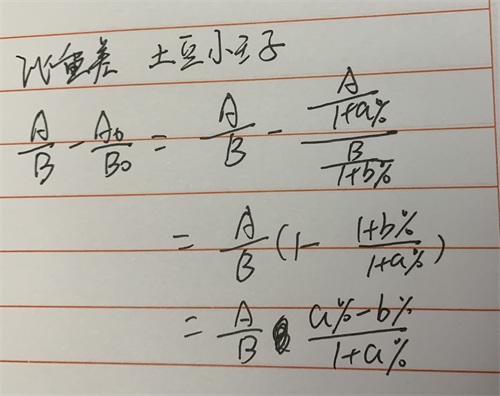 比重差 土豆小王子
A/B - A₀/B₀ = A/B - (A/(1+a%))/(B/(1+b%))
= A/B (1 - (1+b%)/(1+a%))
= A/B (a%-b%)/(1+a%)